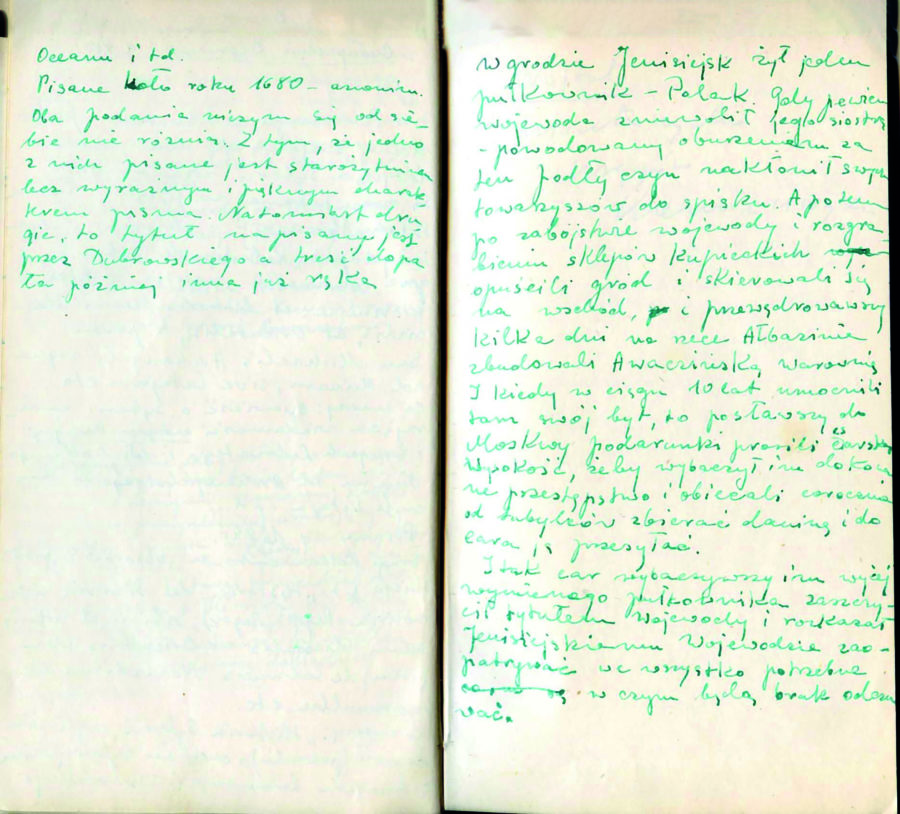 Oceanu i td.
Pisane koło roku 1680 – anonim.
Oba podania niczym się od sie-
bie nie różnią. Z tym, że jedno
z nich pisane jest starożytnim
lecz wyraźnym i pięknym charak-
terem pisma. Natomiast dru-
gie, to tytuł napisany jest
przez Dubrowskiego a treść łopa
ta później inną już ręką
w grodzie Jenisiejsk żył jeden
pułkownik – Polak. Gdy pewien
wojewoda zniewolił jego siostrę
– powodowany oburzeniem za
ten podły czyn nakłonił swych
towarzyszów do spisku. A potem
po zabójstwie wojewody i rozgra-
bieniu sklepów kupieckich
opuścili gród i skierowali się
na wschód, i przewędrowawszy
kilka dni na rzece Ałbazinie
zbudowali Awaczińską warownię
I kiedy w ciągu 10 lat umocnili
tam swój byt, to posławszy do
Moskwy podarunki prosili carską
wysokość, żeby wybaczył im doko
ne przestępstwo i obiecali corocznie
od tubylców zbierać daninę i do
cara ją przesyłać.
I tak car wybaczywszy im wyżej
wymienionego pułkownika zaszczy-
cił tytułem wojewody i rozkazał
Jenisiejskiemu Wojewodzie zao-
patrywać we wszystko potrzebne
w czym będą brak odczu
wać.